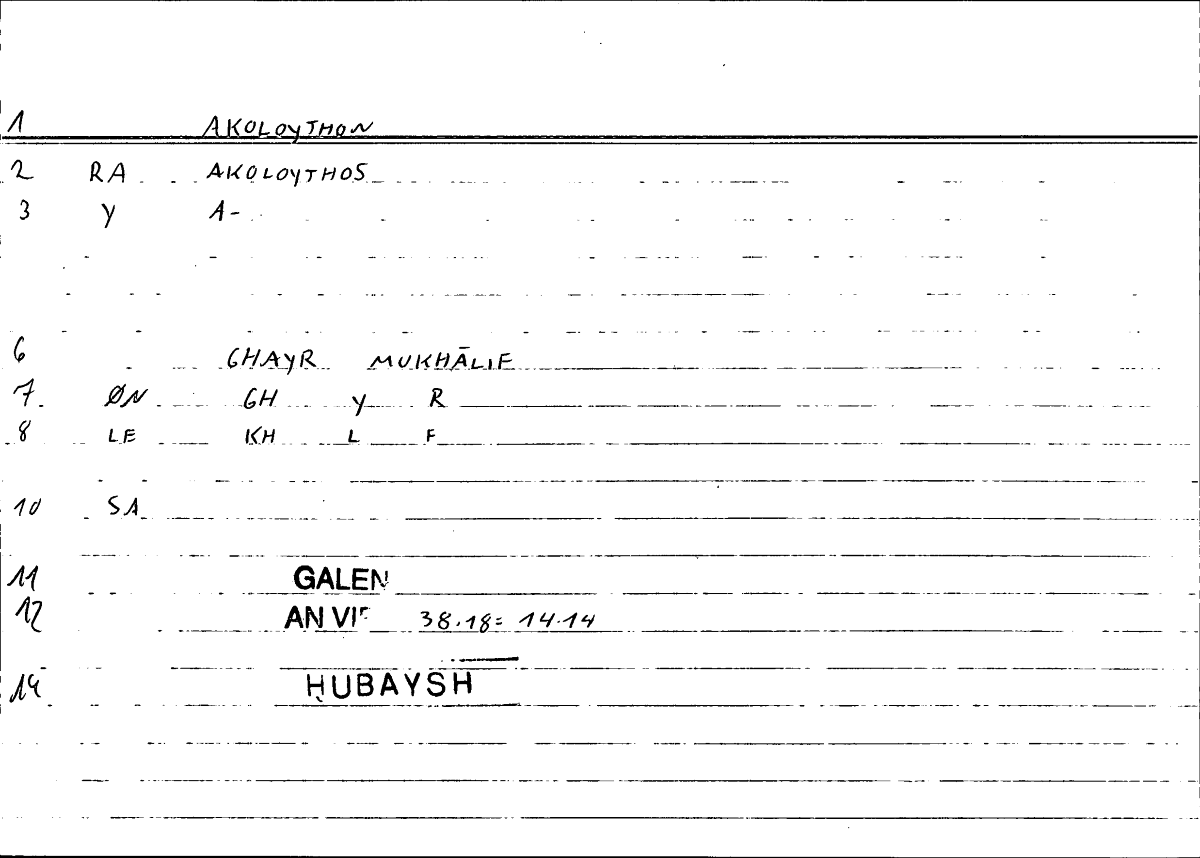 1 AKOLOYTHON
2 RA AKOLOYTHOS
3 Y A-
6 GHAYR MUKHĀLIF
7. ØN GH Y R
8 LE KH L F
10 SA
11 GALEN
12 AN VIR 38.18= 14.14
14 ḤUBAYSH